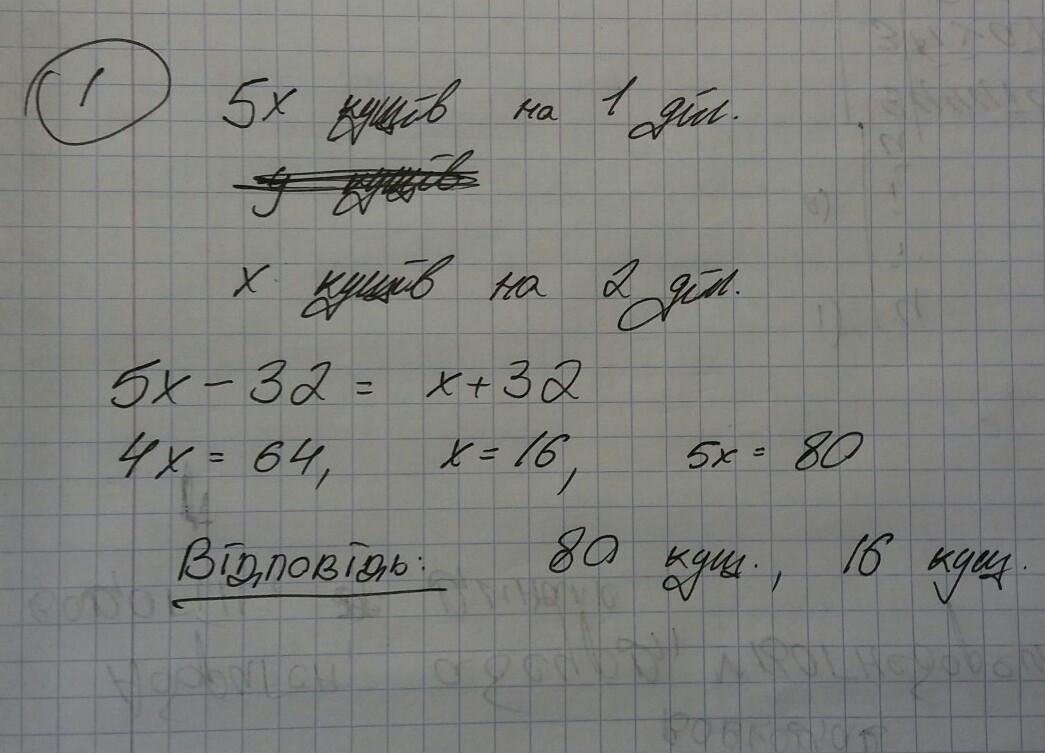 1
5x кущів на 1 діл.
у кущів
x кущів на 2 діл.
5x - 32 = x + 32
4x = 64, x = 16, 5x = 80
Відповідь: 80 кущ., 16 кущ.